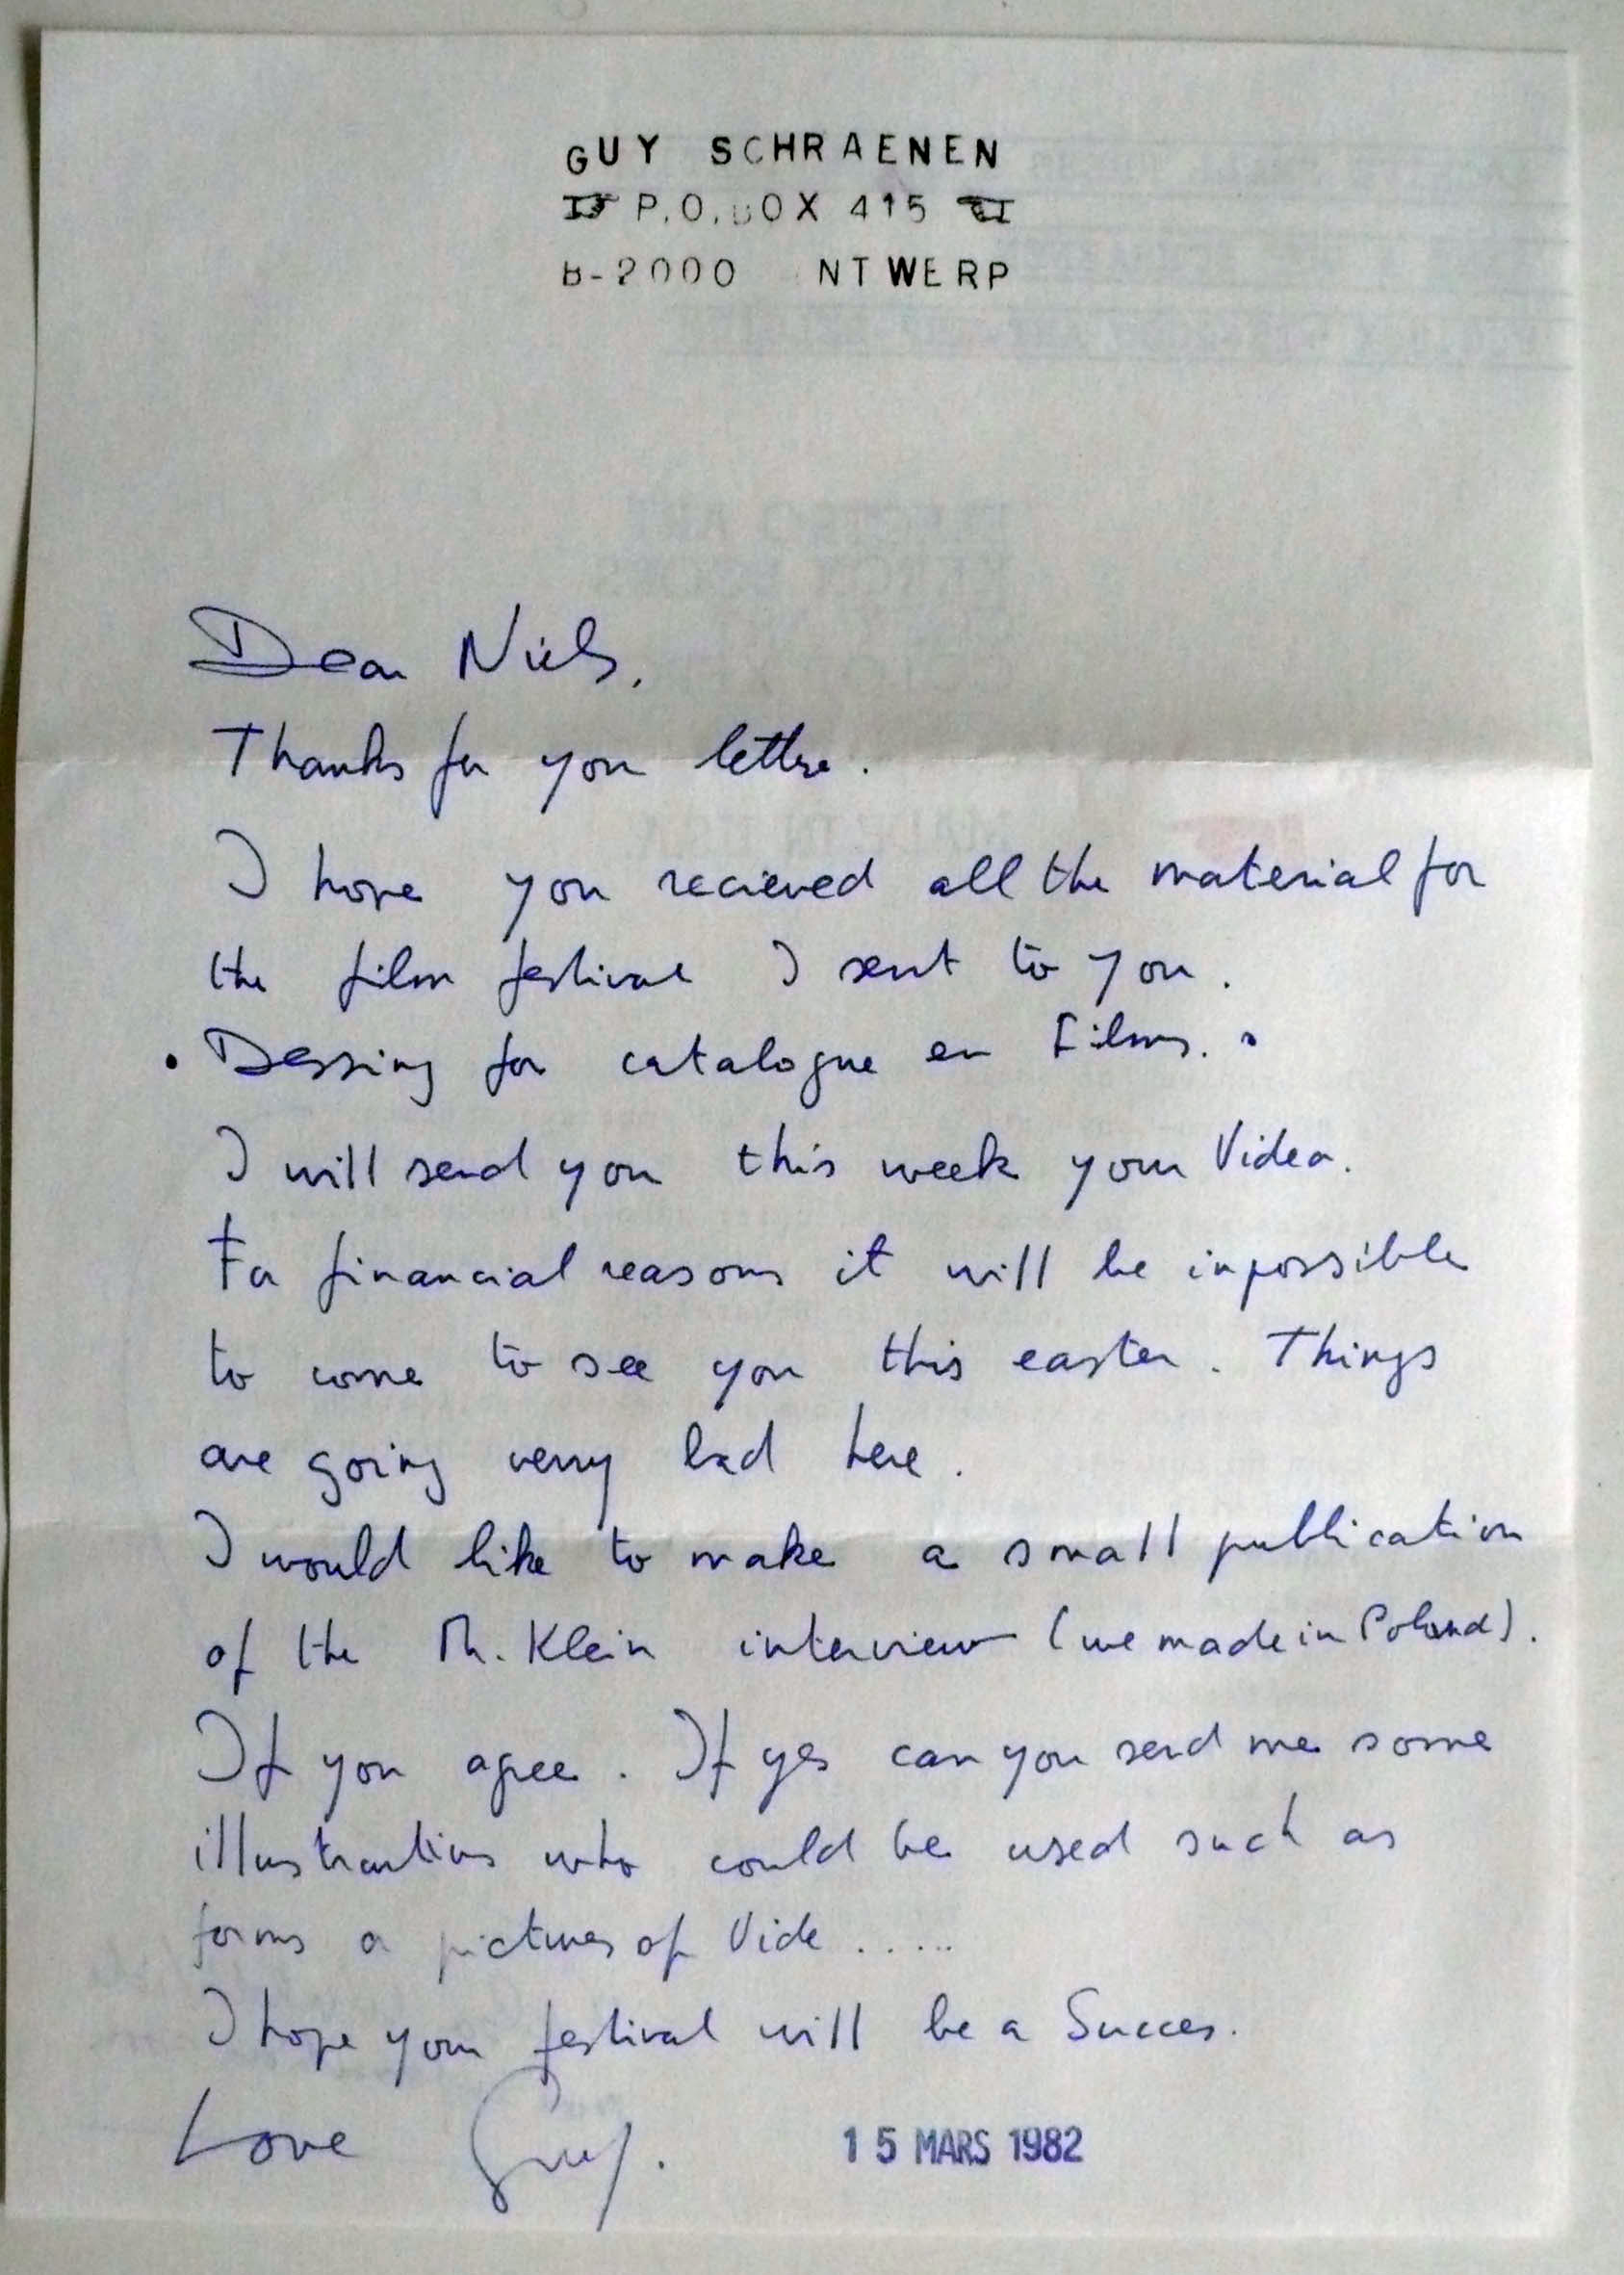 GUY SCHRAENEN
P.O.BOX 415
B-2000 NTWERP
Dear Niels,
Thanks for you letter.
I hope you recieved all the material for
the film festival I sent to you.
. Dessing for catalogue en Films. .
I will send you this week your Video.
For financial reasons it will be inpossible
to come to see you this easter. Things
are going verry bad here.
I would like to make a small publication
of the M. Klein interview (we made in Poland).
If you agree. If yes can you send me some
illustrations who could be used such as
forms a pictures of Vide .....
I hope your festival will be a Succes.
Love Guy.
15 MARS 1982